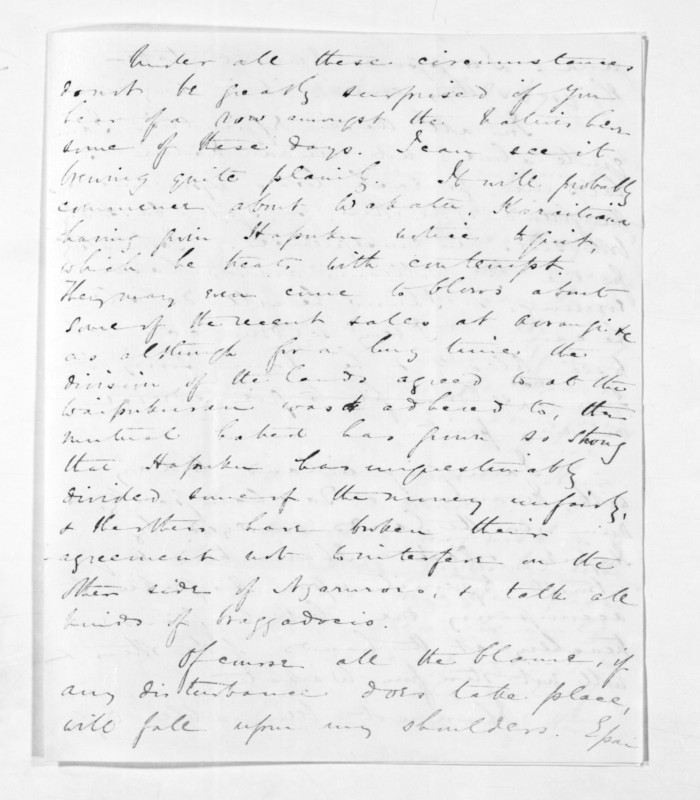 Under all these circumstances
donot be greatly surprised if you
hear of a row amongst the Natives here
some of these days. I can see it
brewing quite plainly. It will probably
commence about Wakatu, Karaitiana
having given Hapuku notice to quit,
which he treats with contempt.
They may even come to blows about
some of the recent sales at &c
as although for a long time the
division of the lands agreed to at the
Waipukurau was adhered to, their
mutual hatred has grown so strong
that Hapuku has unquestionably
divided some of the money unfairly,
& the others have broken their
agreement not to interfere on the
other side of Ngaruroro, & talk all
kinds of braggadocio.
Of course all the blame, if
any disturbance does take place,
will fall upon my shoulders.